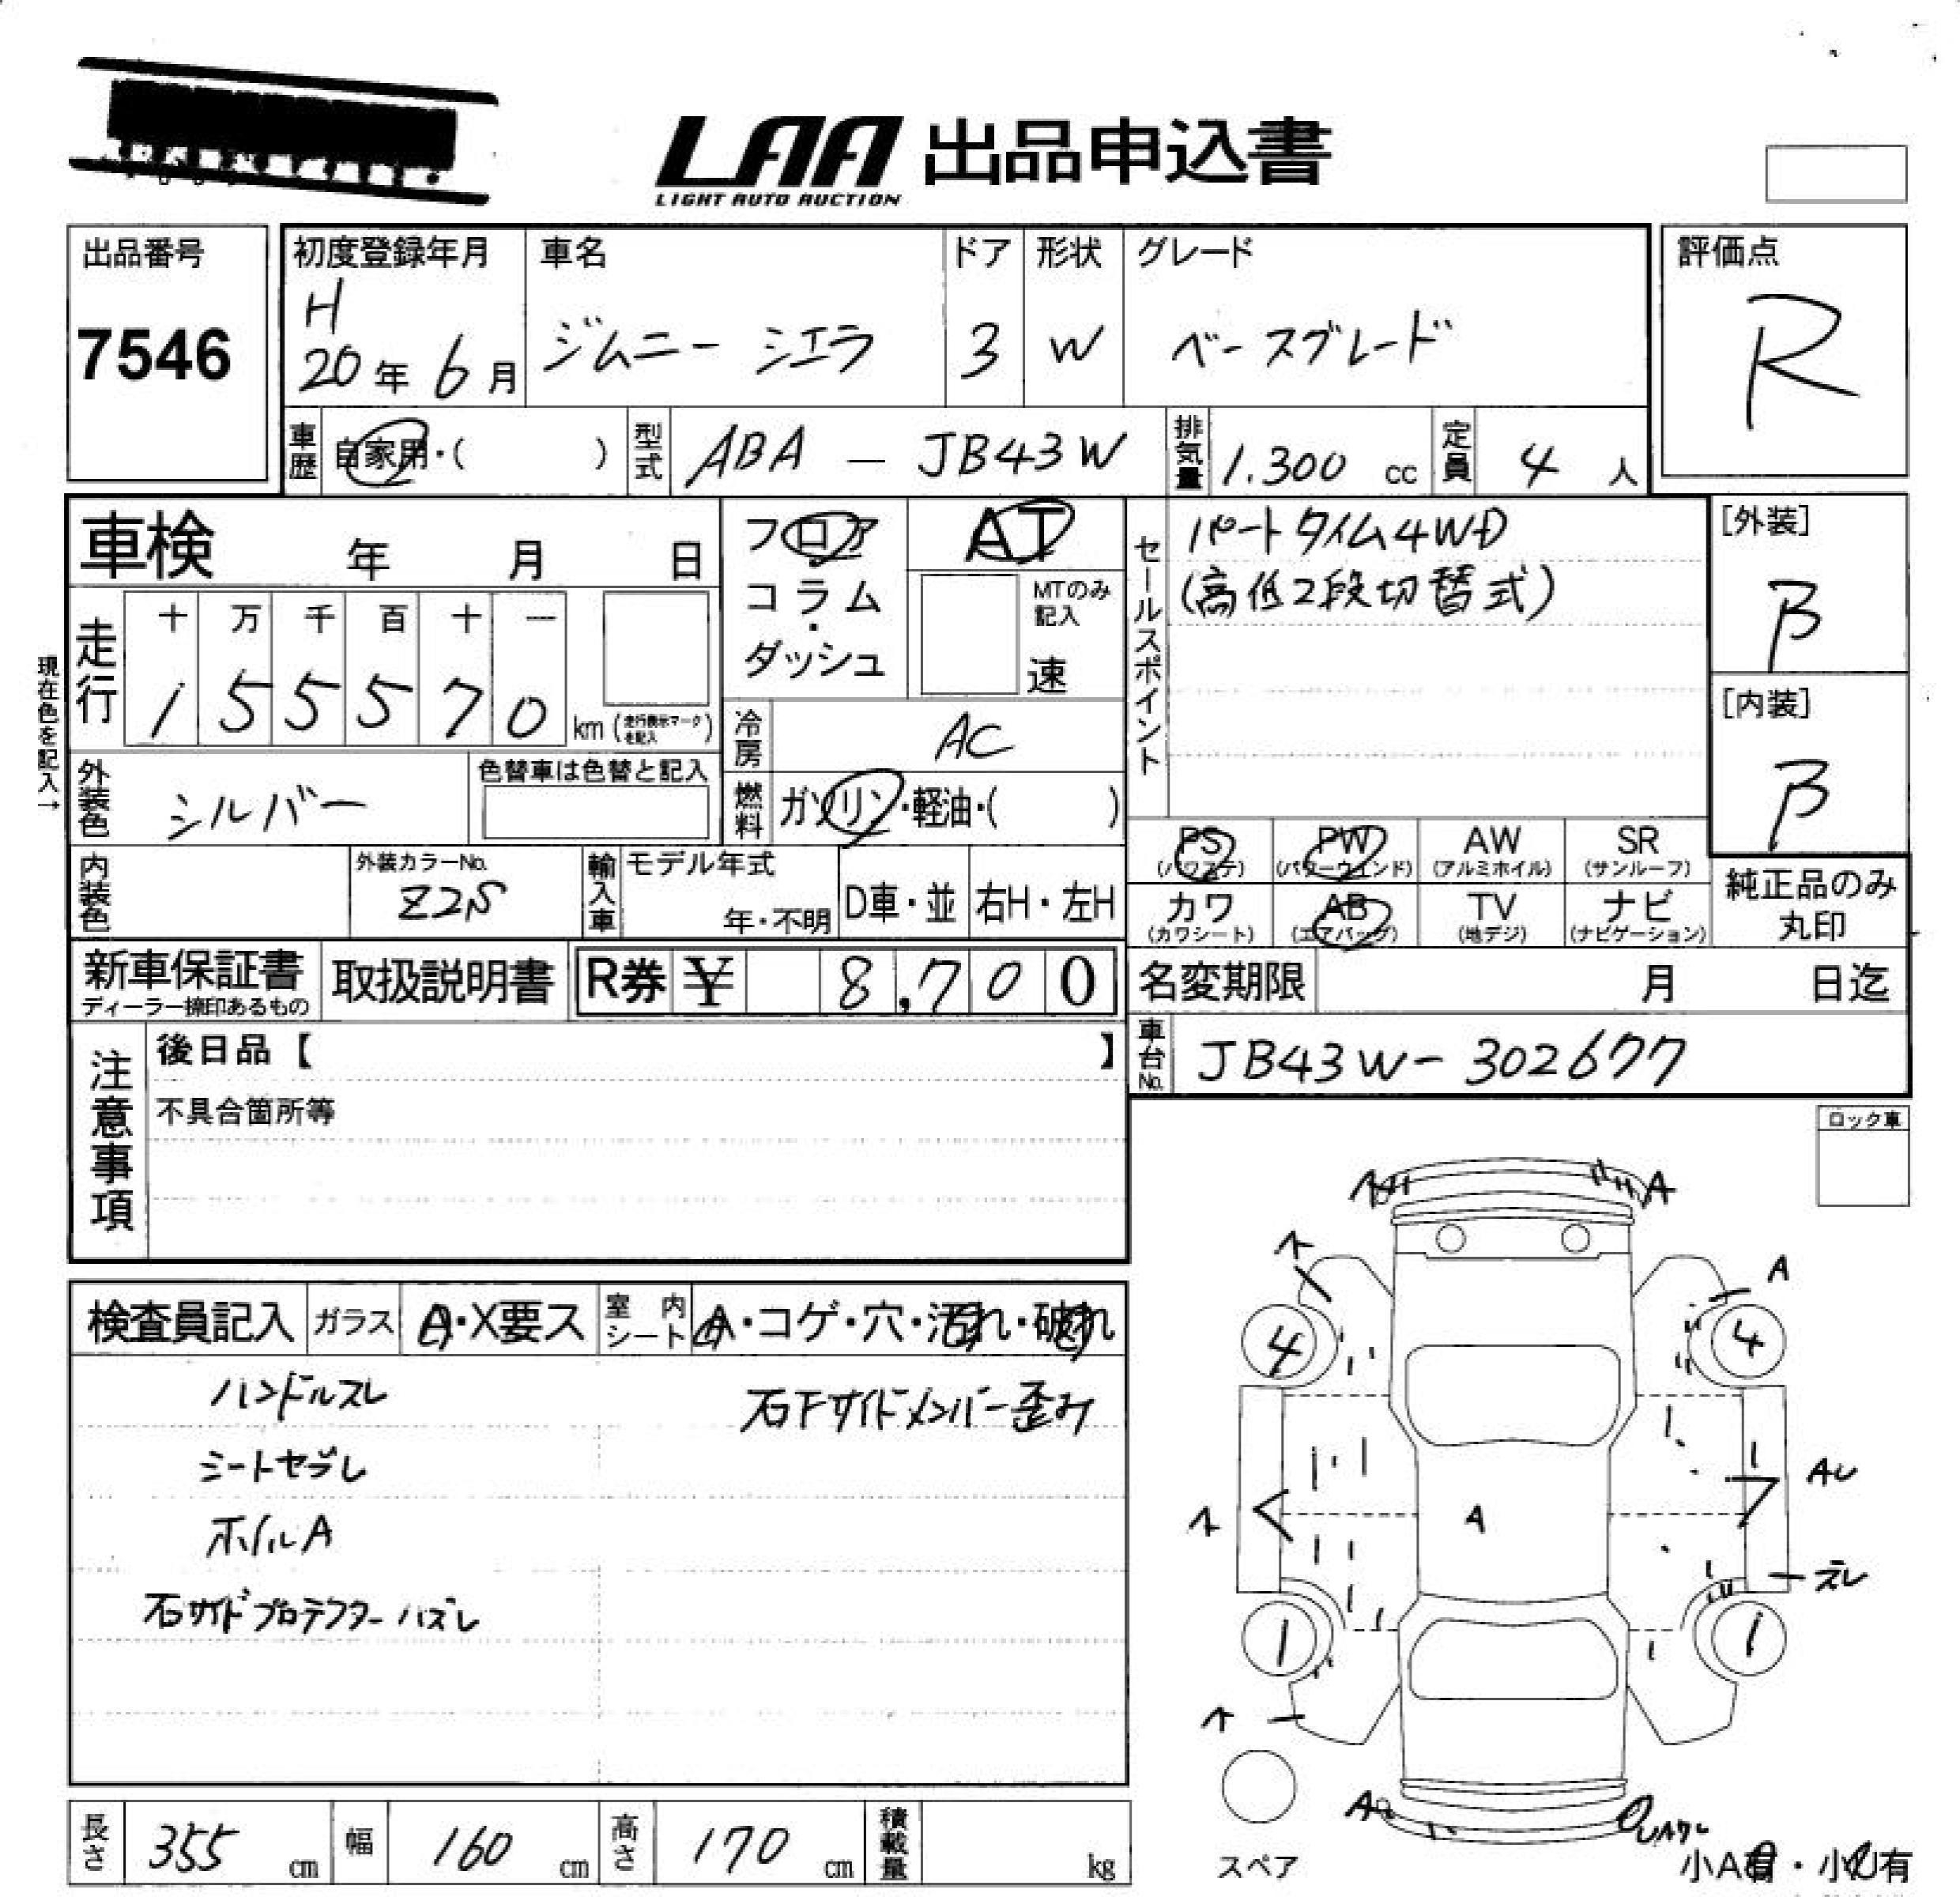 LAA 出品申込書
LIGHT AUTO AUCTION
出品番号
7546
初度登録年月
H
20年6月
車名
ジムニー シエラ
ドア
3
形状
W
グレード
ベースグレード
評価点
R
車歴 自家用・( )
型式 ABA - JB43W
排気量 1.300 cc
定員 4 人
車検 年 月 日
フロア
・
コラム
・
ダッシュ
AT
MTのみ
記入
速
セールスポイント
パートタイム4WD
(高低2段切替式)
[外装]
B
[内装]
B
現在色を記入→
走行
十 万 千 百 十 一
1 5 5 5 7 0 km (走行表示マークを記入)
冷房 AC
外装色 シルバー
色替車は色替と記入
燃料 ガソリン・軽油・( )
内装色
外装カラーNo.
Z2S
輸入車
モデル年式
年・不明
D車・並
右H・左H
PS
(パワステ)
PW
(パワーウィンド)
AW
(アルミホイル)
SR
(サンルーフ)
カワ
(カワシート)
AB
(エアバッグ)
TV
(地デジ)
ナビ
(ナビゲーション)
純正品のみ
丸印
新車保証書
ディーラー捺印あるもの
取扱説明書
R券 ¥ 8,700
名変期限 月 日迄
注意事項
後日品【 】
不具合箇所等
車台No. JB43W-302677
ロック車
検査員記入
ガラス A・X要ス
室内シート A・コゲ・穴・汚れ・破れ
ハンドルスレ
右Fサイドメンバー歪み
シートセブレ
ホイルA
右サイドプロテクターハズレ
A
A
4
4
A
AU
ズレ
1
1
A
スペア
小A有・小U有
長さ 355 cm
幅 160 cm
高さ 170 cm
積載量 kg